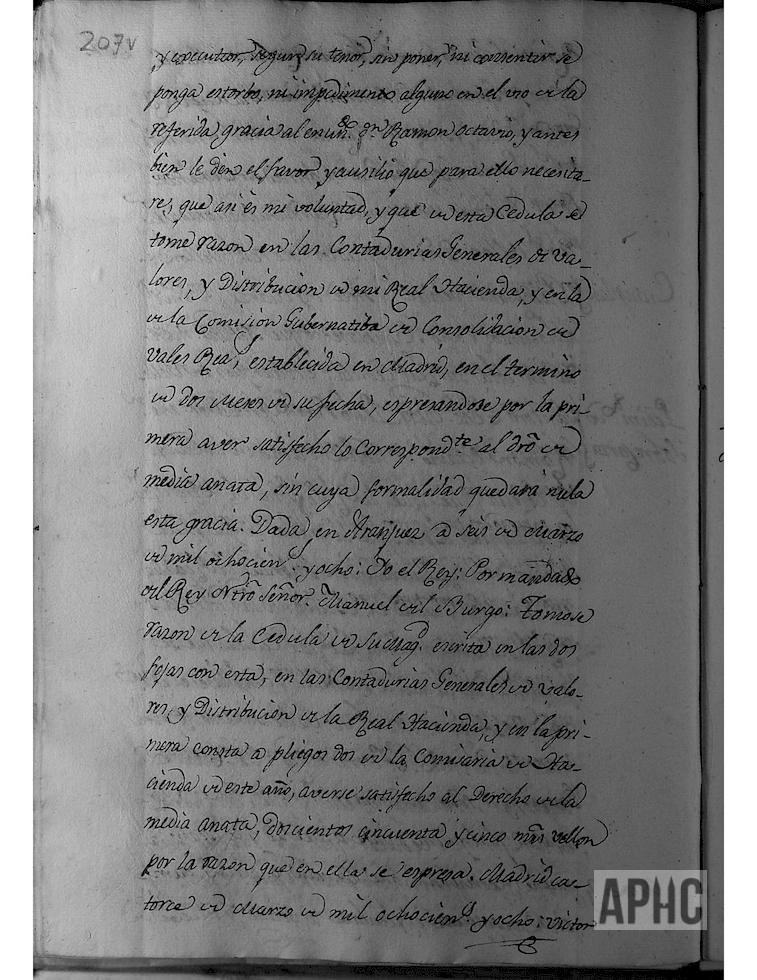 207v
y executeis, segun su tenor, sin poner, ni consentir se
ponga estorbo, ni impedimento alguno en el uso de la
referida gracia al enun.do dn. Ramon Octavio, y antes
bien le den el favor y ausilio que para ello necesita-
re, que asi es mi voluntad, y que de esta Cedula se
tome razon en las Contadurias Generales de Va-
lores, y Distribucion de mi Real Hacienda, y en la
de la Comision Gubernatiba de Consolidacion de
Vales Reas, establecida en Madrid, en el termino
de dos meses de su fecha, espresandose por la pri-
mera aver satisfecho lo Correspondte. al dro de
media anata, sin cuya formalidad quedará nula
esta gracia. Dada en Aranjuez a seis de Marzo
de mil ochocien.s y ocho: Yo el Rey: Por mandado
del Rey Ntro Señor. Manuel del Burgo: Tomose
razon de la Cedula de Su Magd. escrita en las dos
fojas con esta, en las Contadurias Generales de Valo-
res, y Distribucion de la Real Hacienda, y en la pri-
mera consta a pliegos dos de la Comisaria de Ha-
cienda de este año, averse satisfecho al Derecho de la
media anata, doscientos cincuenta y cinco mrs vellon
por la razon que en ella se espresa. Madrid ca-
torce de Marzo de mil ochocien.s y ocho: Victor
APHC